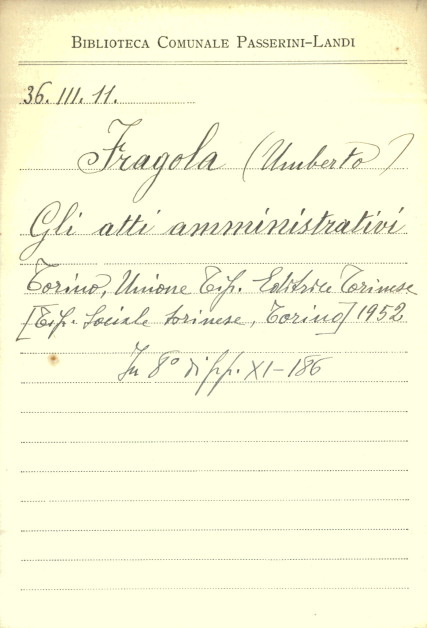 BIBLIOTECA COMUNALE PASSERINI-LANDI
36. III. 11.
Fragola (Umberto)
Gli atti amministrativi
Torino, Unione Tip. Editrice Torinese
[Tip. Sociale torinese, Torino] 1952
In 8° di pp. XI-186